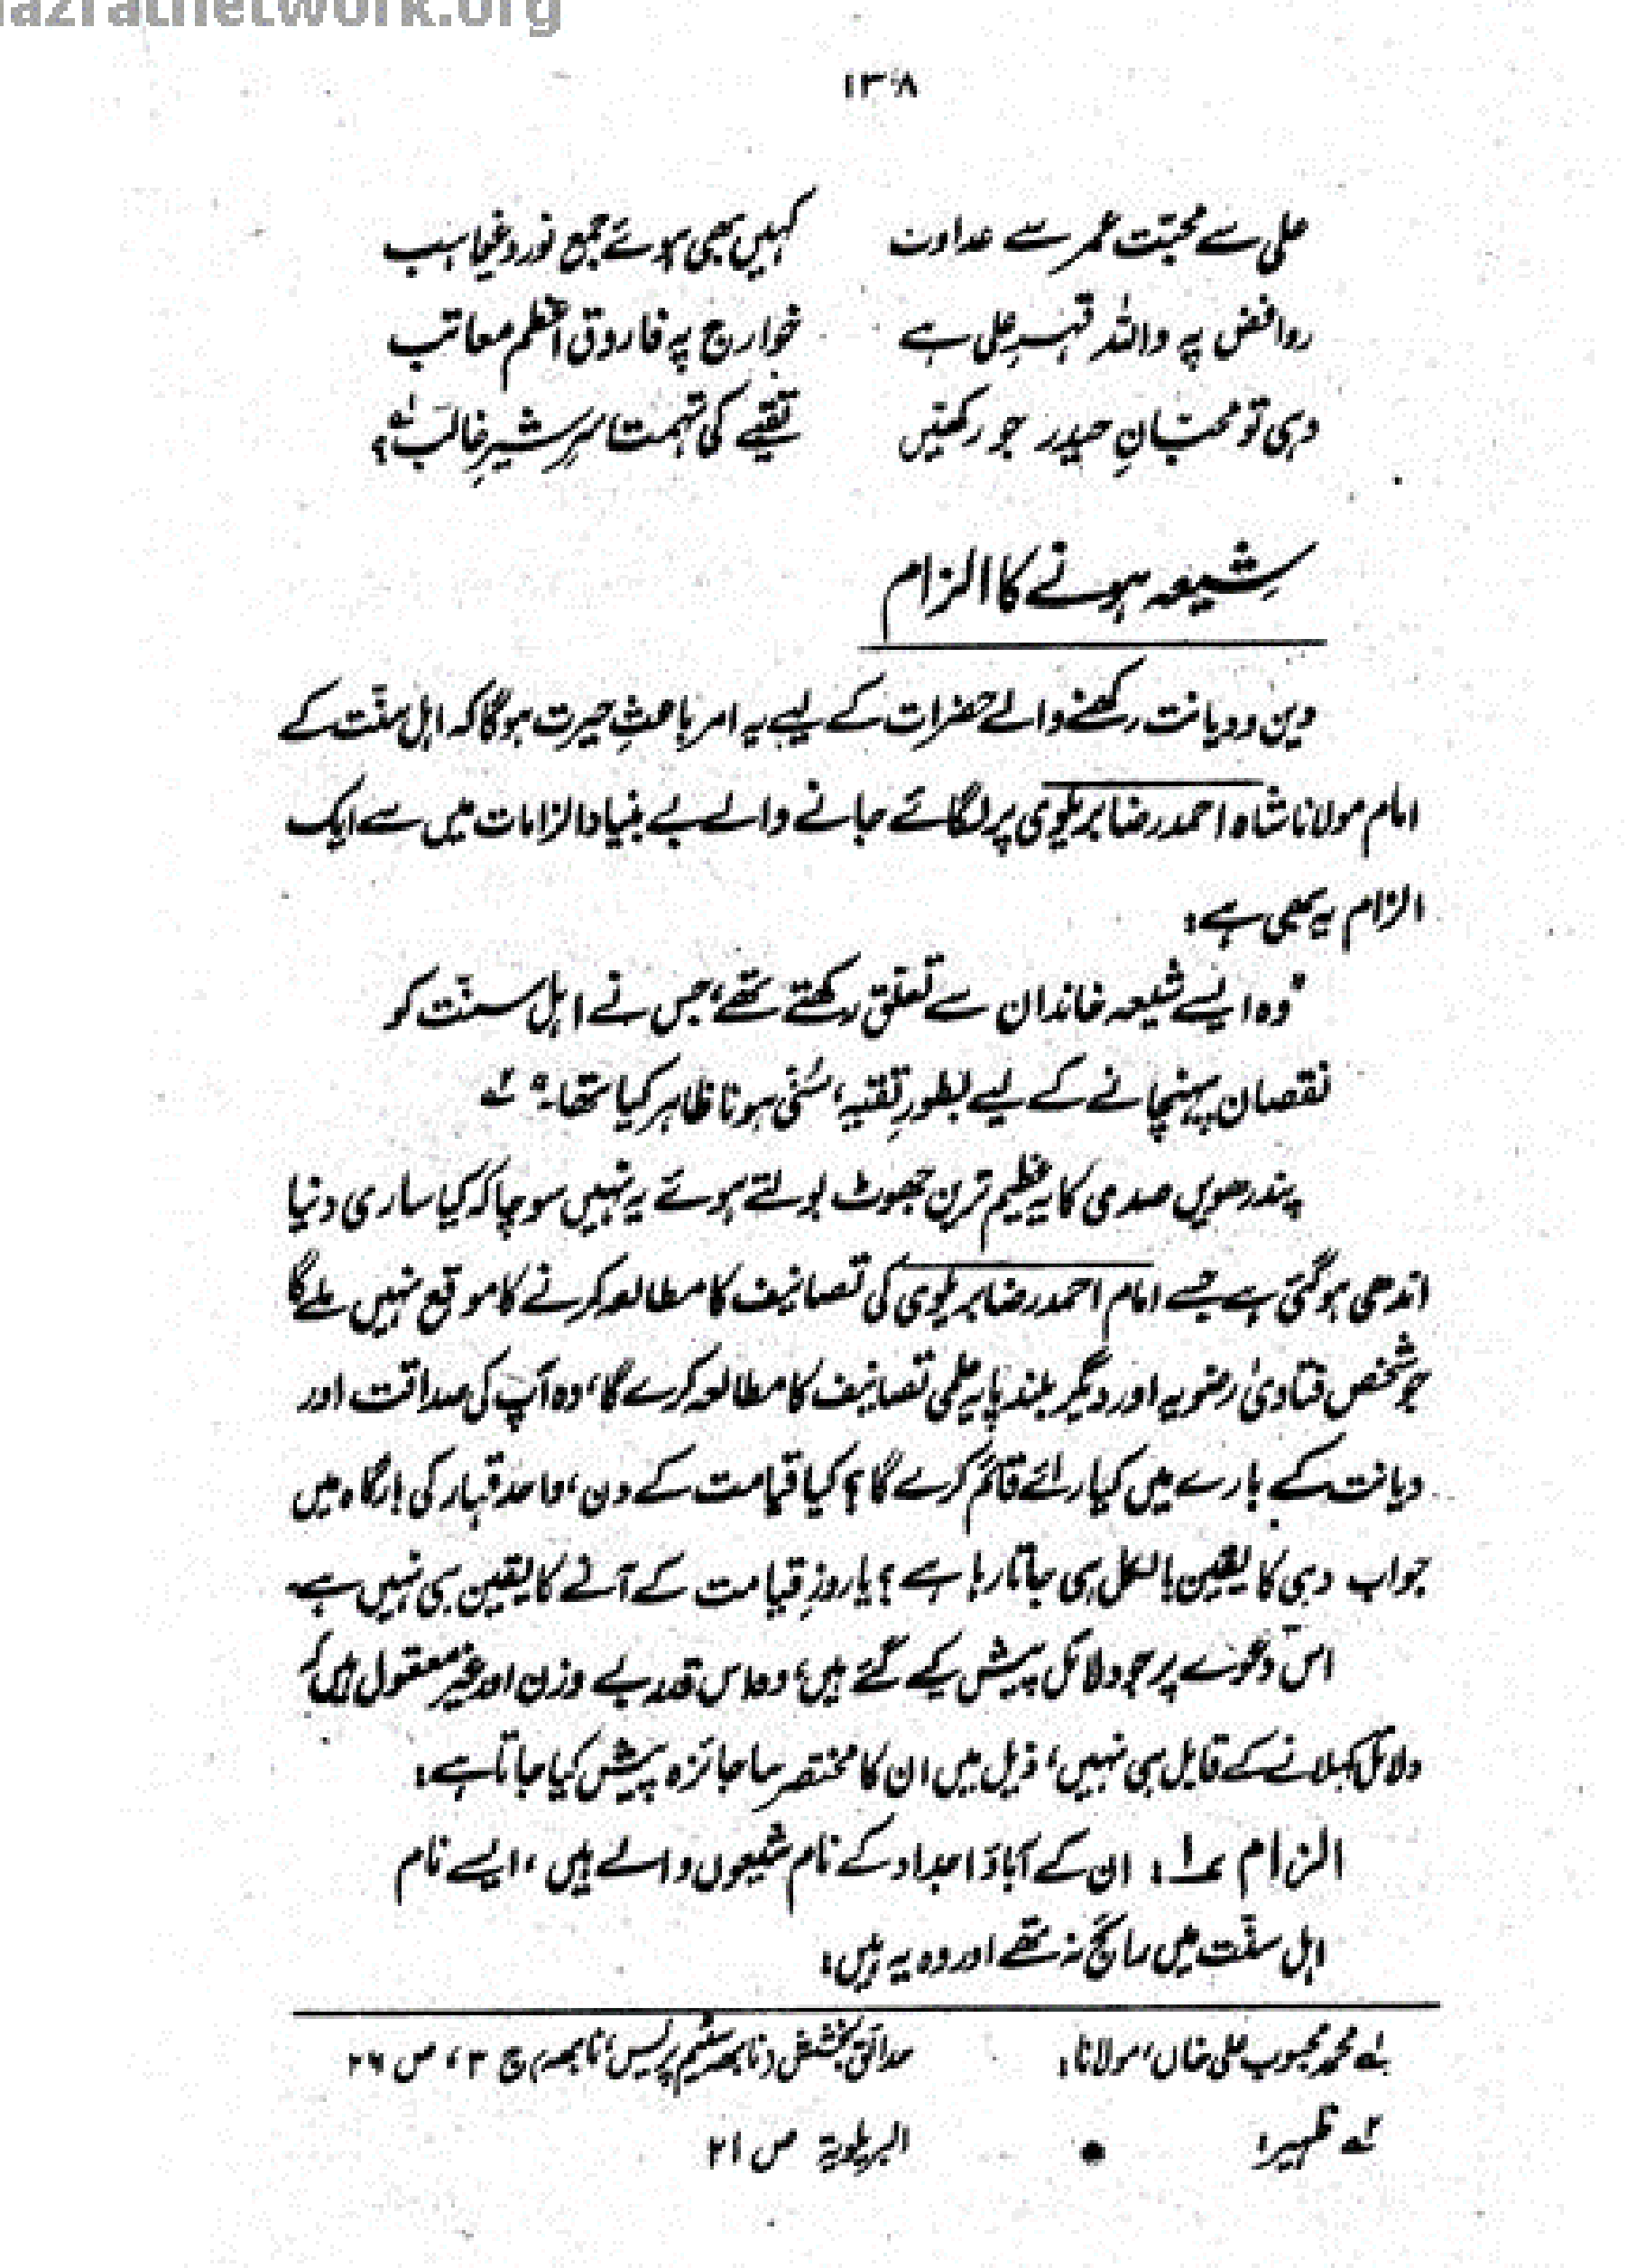 azratnetwork.org
۱۳۸
علی سے محبّت عمر سے عداوت کہیں بھی ہوئے جمع نور و غیاہب
روافض پہ واللہ قہرِ علی ہے خوارج پہ فاروق اعظم معاتب
وہی تو محبّانِ حیدر جو رکھیں تقیے کی تہمت بر شیرِ غالب؟
شیعہ ہونے کا الزام
دین و دیانت رکھنے والے حضرات کے لیے یہ امر باعثِ حیرت ہوگا کہ اہل سنّت کے
امام مولانا شاہ احمد رضا بریلوی پر لگائے جانے والے بے بنیاد الزامات میں سے ایک
الزام یہ بھی ہے:
"وہ ایسے شیعہ خاندان سے تعلّق رکھتے تھے، جس نے اہل سنّت کو
نقصان پہنچانے کے لیے بطورِ تقیّہ، سُنّی ہونا ظاہر کیا تھا۔" ۲؎
پندرھویں صدی کا یہ عظیم ترین جھوٹ بولتے ہوئے یہ نہیں سوچا کہ کیا ساری دنیا
اندھی ہوگئی ہے جسے امام احمد رضا بریلوی کی تصانیف کا مطالعہ کرنے کا موقع نہیں ملے گا
جو شخص فتاویٰ رضویہ اور دیگر بلند پایہ علمی تصانیف کا مطالعہ کرے گا، وہ آپ کی صداقت اور
دیانت کے بارے میں کیا رائے قائم کرے گا؟ کیا قیامت کے دن، واحد قہار کی بارگاہ میں
جواب دہی کا یقین بالکل ہی جاتا رہا ہے؟ یا روزِ قیامت کے آنے کا یقین ہی نہیں ہے۔
اس دعوے پر جو دلائل پیش کیے گئے ہیں، وہ اس قدر بے وزن اور غیر معقول ہیں کہ
دلائل کہلانے کے قابل ہی نہیں، ذیل میں ان کا مختصر سا جائزہ پیش کیا جاتا ہے:
الزام ۱؎: ان کے آباؤ اجداد کے نام شیعوں والے ہیں، ایسے نام
اہل سنّت میں رائج نہ تھے اور وہ یہ ہیں:
۱؎ محمد محبوب علی خاں، مولانا: حدائق بخشش (نابھہ سٹیم پریس، نابھہ) ج ۳، ص ۲۶
۲؎ ظہیر: البریلویۃ ص ۲۱